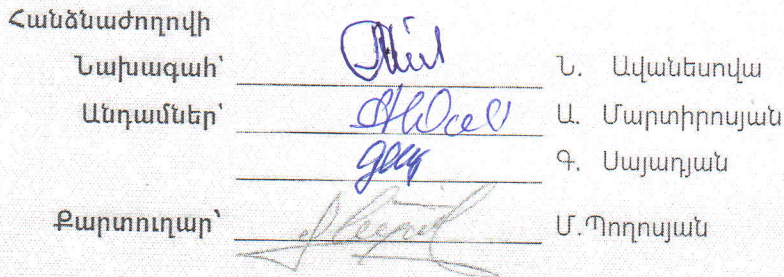 Հանձնաժողովի
Նախագահ՝ Ն. Ավանեսովա
Անդամներ՝ Ա. Մարտիրոսյան
Գ. Սայադյան
Քարտուղար՝ Մ.Պողոսյան